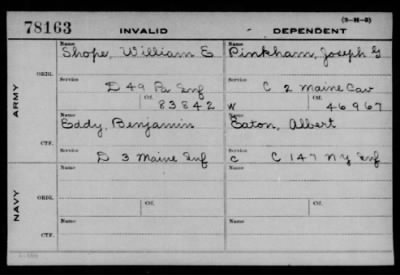 (3-H-3)
78163 INVALID DEPENDENT
Name Name
Shope, William E Pinkham, Joseph G
ORDL.
Service Service
D 49 Pa Inf C 2 Maine Cav
Ctf. Ctf.
83842 W 46967
ARMY
Name Name
Eddy, Benjamin Eaton, Albert
CTF.
Service Service
D 3 Maine Inf C C 147 N Y Inf
Name Name
NAVY
ORDL.
Ctf. Ctf.
Name Name
CTF.